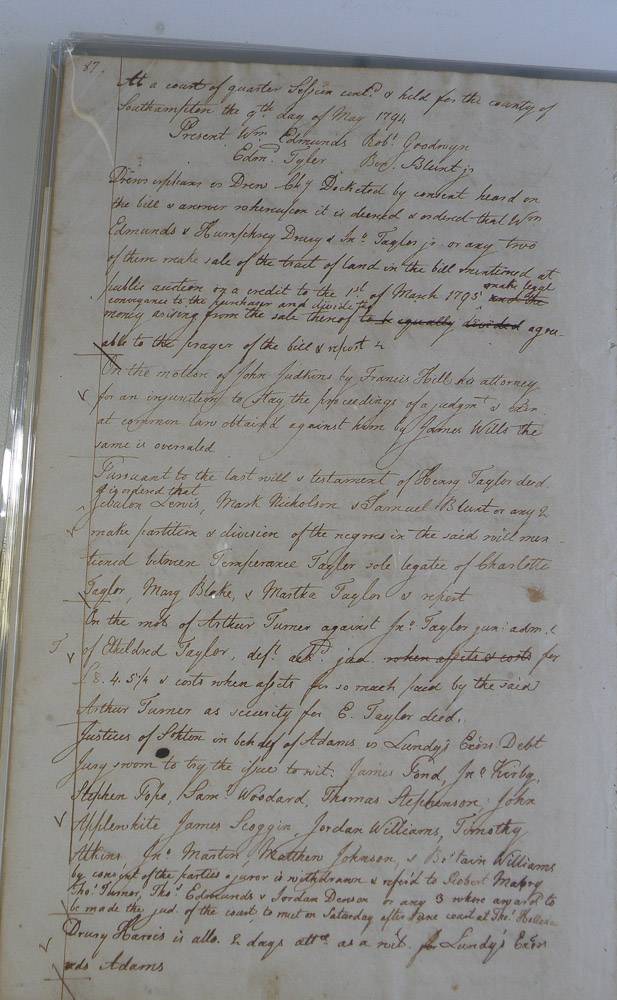 87.
At a court of quarter Session contd. & held for the county of
Southampton the 9th day of May 1794
Present Wm Edmunds Robt Goodwyn
Edn. Tyler Ben. Blunt jr
Drews orphans vs Drew Chy Docketed by consent heard on
the bill & answer whereupon it is decreed & ordered that Wm
Edmunds & Humphrey Drury & Jno. Taylor jr. or any two
of them make sale of the tract of land in the bill mentioned at
public auction on a credit to the 1st of March 1795 make legal and the
conveyance to the purchaser and divide the
money arising from the sale thereof to be equally divided agree-
able to the prayer of the bill & report
On the motion of John Judkins by Francis Hill his attorney
for an injunction to stay the proceedings of a judgmt & Exn
at common law obtain'd against him by James Wills the
same is overruled
Pursuant to the last will & testament of Henry Taylor deed.
it is ordered that
Lewis, Mark Nicholson & Samuel Blunt or any 2
make partition & division of the negroes in the said will men-
tioned between Temperance Taylor sole legatee of Charlotte
Taylor, Mary Blake, & Martha Taylor & report
On the mot. of Arthur Turner against Jno. Taylor jun. adm.
T of Etheldred Taylor, deft. jud. when assets & costs for
£8. 4. 5½ & costs when assets for so much paid by the said
Arthur Turner as security for E. Taylor deed.
Justices of Sohton in behalf of Adams vs Lundy's Exors. Debt
Jury sworn to try the issue to wit. James Pond, Jno Kirby,
Stephen Pope, Saml Woodard, Thomas Stephenson, John
Applewhite James Scoggin, Jordan Williams, Timothy
Atkins, Jno Martin, Matthew Johnson, & Britain Williams
by consent of the parties a juror is withdrawn & refer'd to Robert Mabry
Thos. Turner, Thos. Edmunds & Jordan Denson or any 3 whose award to
be made the jud. of the court to meet on Saturday after June court at Thos.
Drury Harris is allo. 2 days attce as a wit. for Lundy's Exors
ads Adams